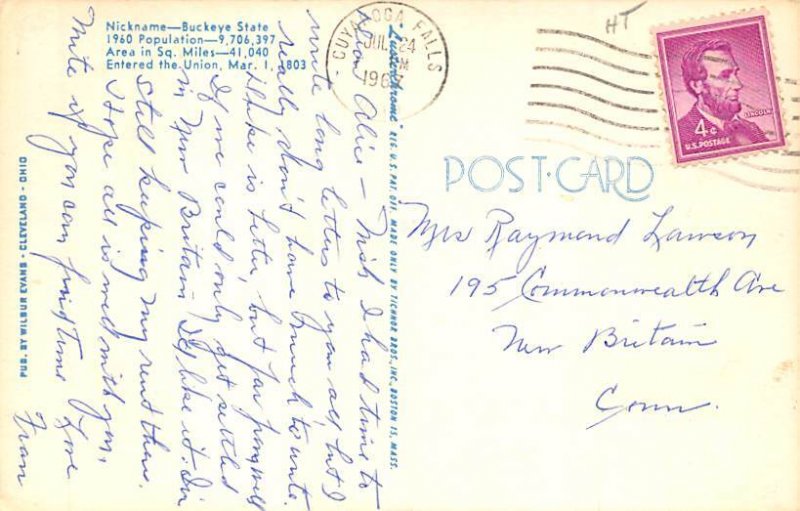 Nickname—Buckeye State
1960 Population—9,706,397
Area in Sq. Miles—41,040
Entered the Union, Mar. 1, 1803
CUYAHOGA FALLS
JUL 24
M
196
HT
4¢
LINCOLN
U.S. POSTAGE
POST-CARD
Mrs Raymond Lawson
195 Commonwealth Ave
New Britain
Conn.
Dear Alice — Wish I had time to
write long letters to you all, but I
really don't have much to write.
Jake is better, but far from well
If we could only get settled
in New Britain I'd like it. I'm
still keeping my rent there.
Hope all is well with you,
Write if you can find time
Love
Fran
"Lusterchrome" REG. U.S. PAT. OFF. MADE ONLY BY TICHNOR BROS., INC., BOSTON 15, MASS.
PUB. BY WILBUR EVANS - CLEVELAND - OHIO